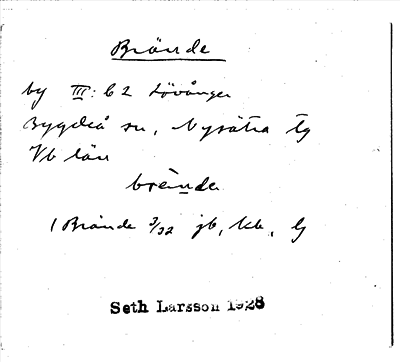 Brände
by III: b2 Lövånger
Bygdeå sn, Nysätra tg
Vb län
brènde
1 Brände 3/32 jb, kb, lj
Seth Larsson 1928